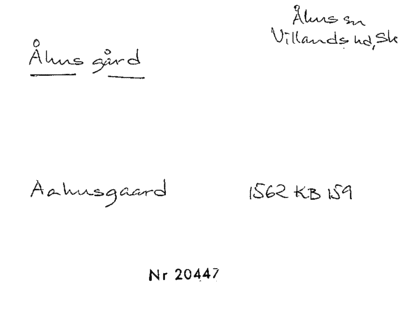 Åhus sn
Villands hd, Sk
Åhus gård
Aahusgaard 1562 KB 159
Nr 20447